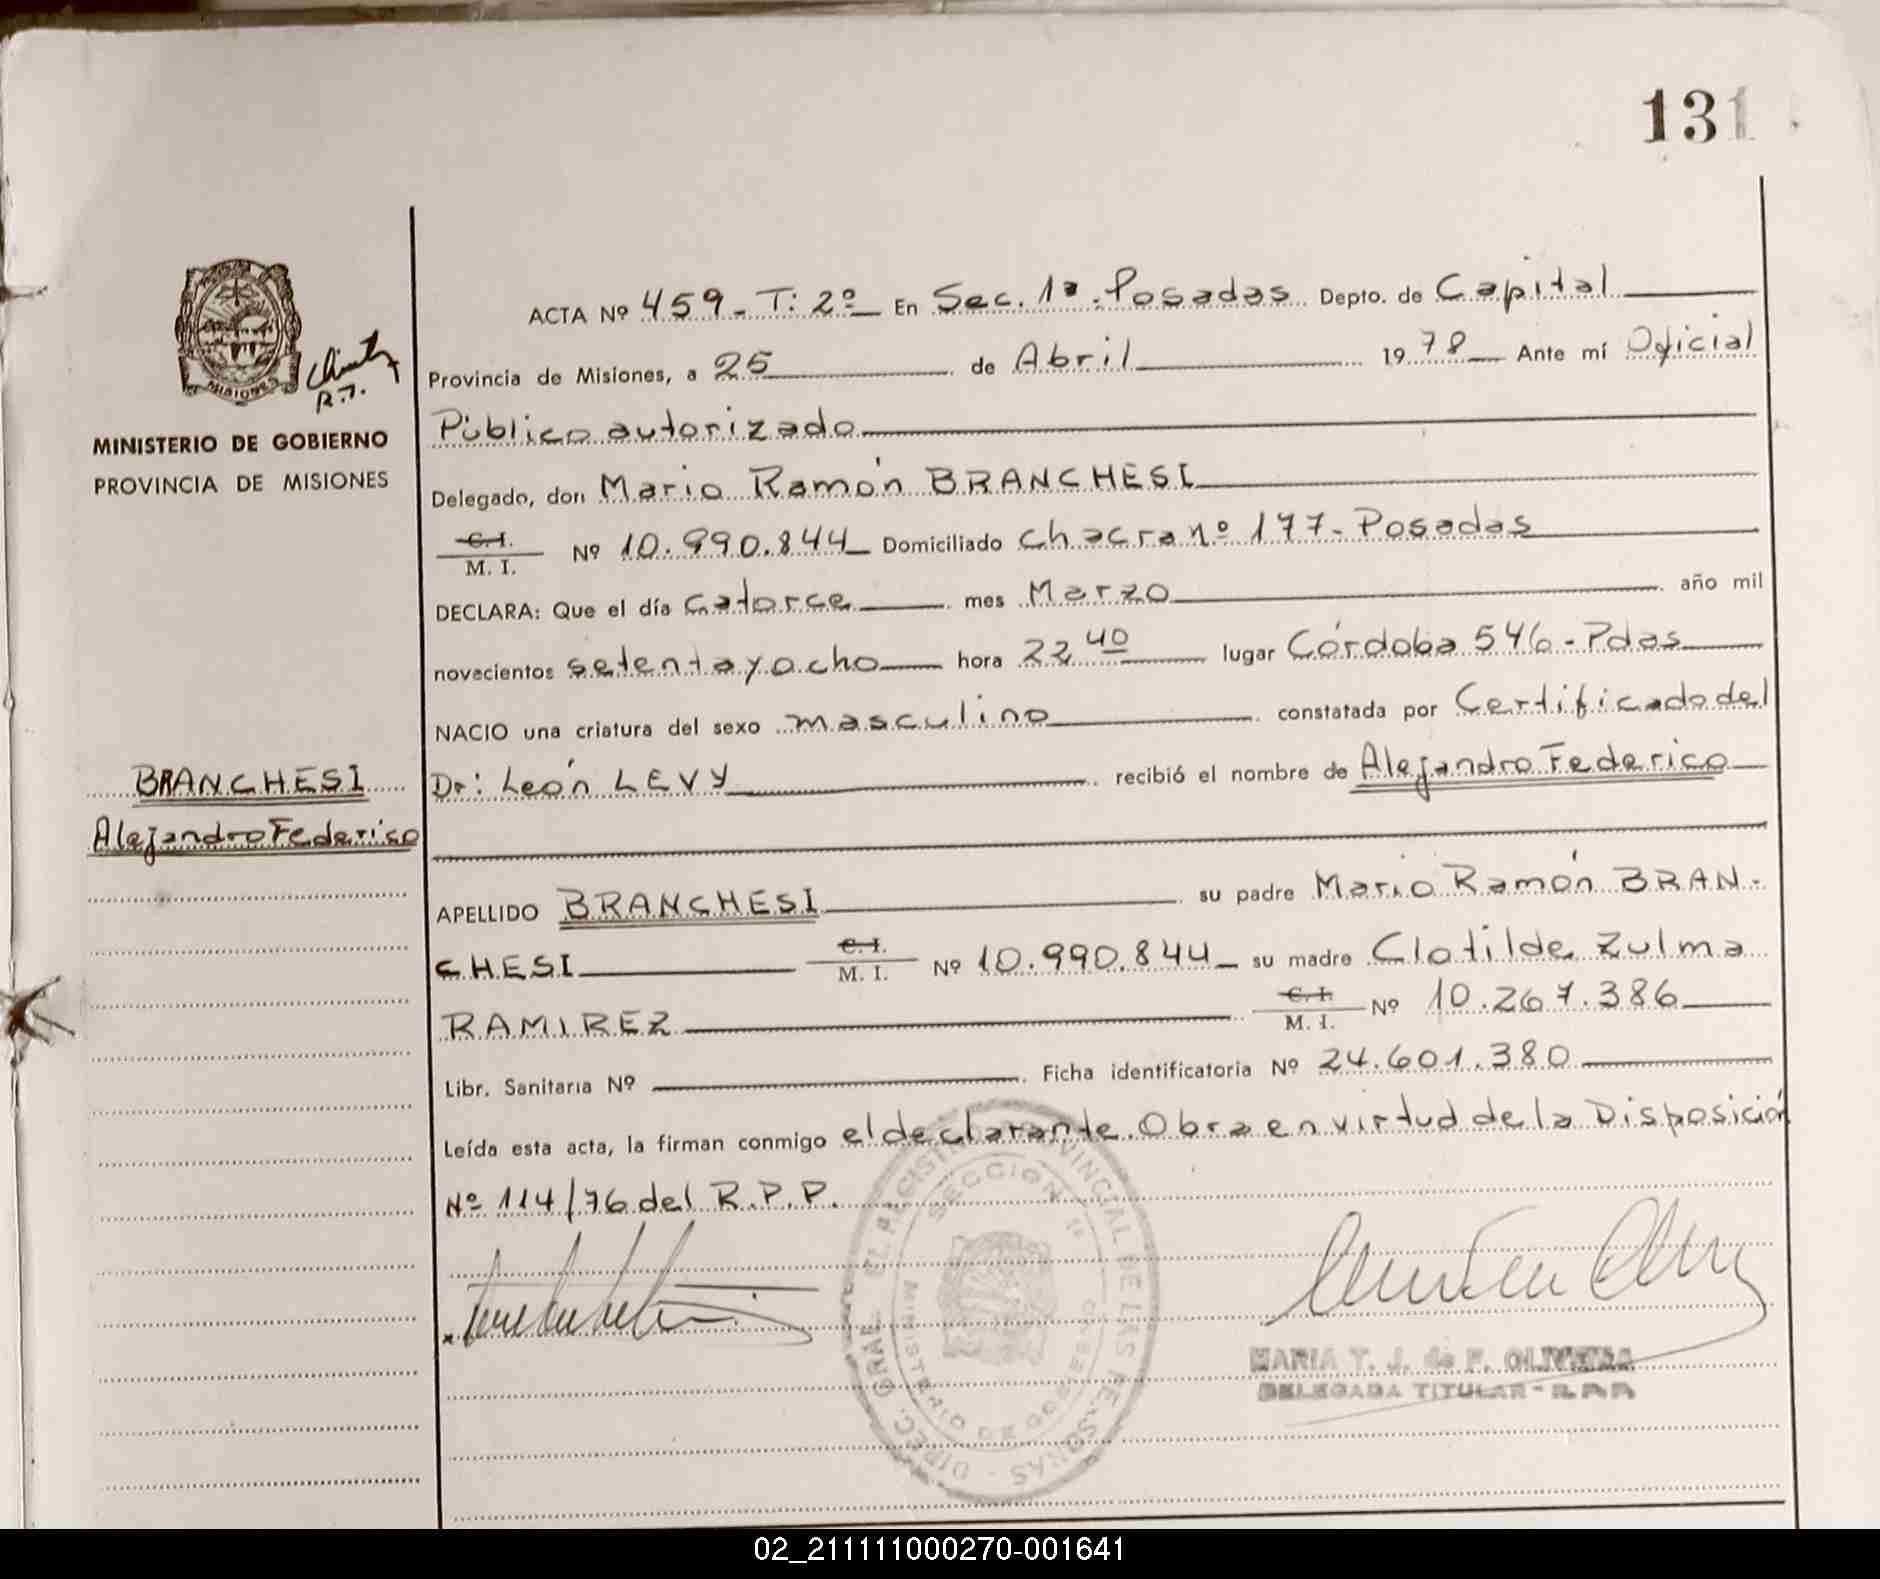 131
ACTA Nº 459 - T: 2º En Sec. 1ª - Posadas Depto. de Capital
Provincia de Misiones, a 25 de Abril 1978 Ante mí Oficial
Público autorizado
MISIONES
R.P.
MINISTERIO DE GOBIERNO
PROVINCIA DE MISIONES
Delegado, don Mario Ramón BRANCHESI
C.I.
M. I. Nº 10.990.844 Domiciliado Chacra nº 177 - Posadas
DECLARA: Que el día catorce mes Marzo año mil
novecientos setenta y ocho hora 22 40 lugar Córdoba 546 - Pdas
NACIO una criatura del sexo masculino constatada por Certificado del
BRANCHESI
Alejandro Federico
Dr: León LEVY recibió el nombre de Alejandro Federico
APELLIDO BRANCHESI su padre Mario Ramón BRAN-
CHESI C.I. M. I. Nº 10.990.844 su madre Clotilde Zulma
RAMIREZ C.I. M. I. Nº 10.267.386
Libr. Sanitaria Nº Ficha identificatoria Nº 24.601.380
Leída esta acta, la firman conmigo el declarante. Obra en virtud de la Disposición
Nº 114/76 del R.P.P.
DIREC. GRAL. EL REGISTRO PROVINCIAL DE LAS PERSONAS
SECCION 1ª
MINISTERIO DE GOBIERNO
MARIA T. J. de F. OLIVEIRA
DELEGADA TITULAR - R. P. P.
02_211111000270-001641